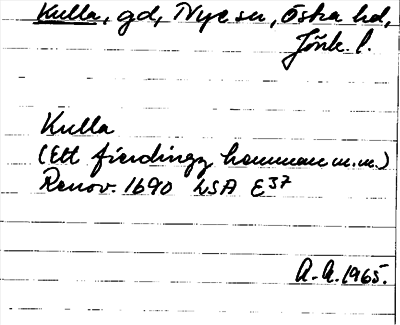 Kulla, gd, Nye sn, Östra hd,
Jönk. l.
Kulla
(Ett fierdingz hemman m.m.)
Renov. 1690 LSA E37
A.A. 1965.